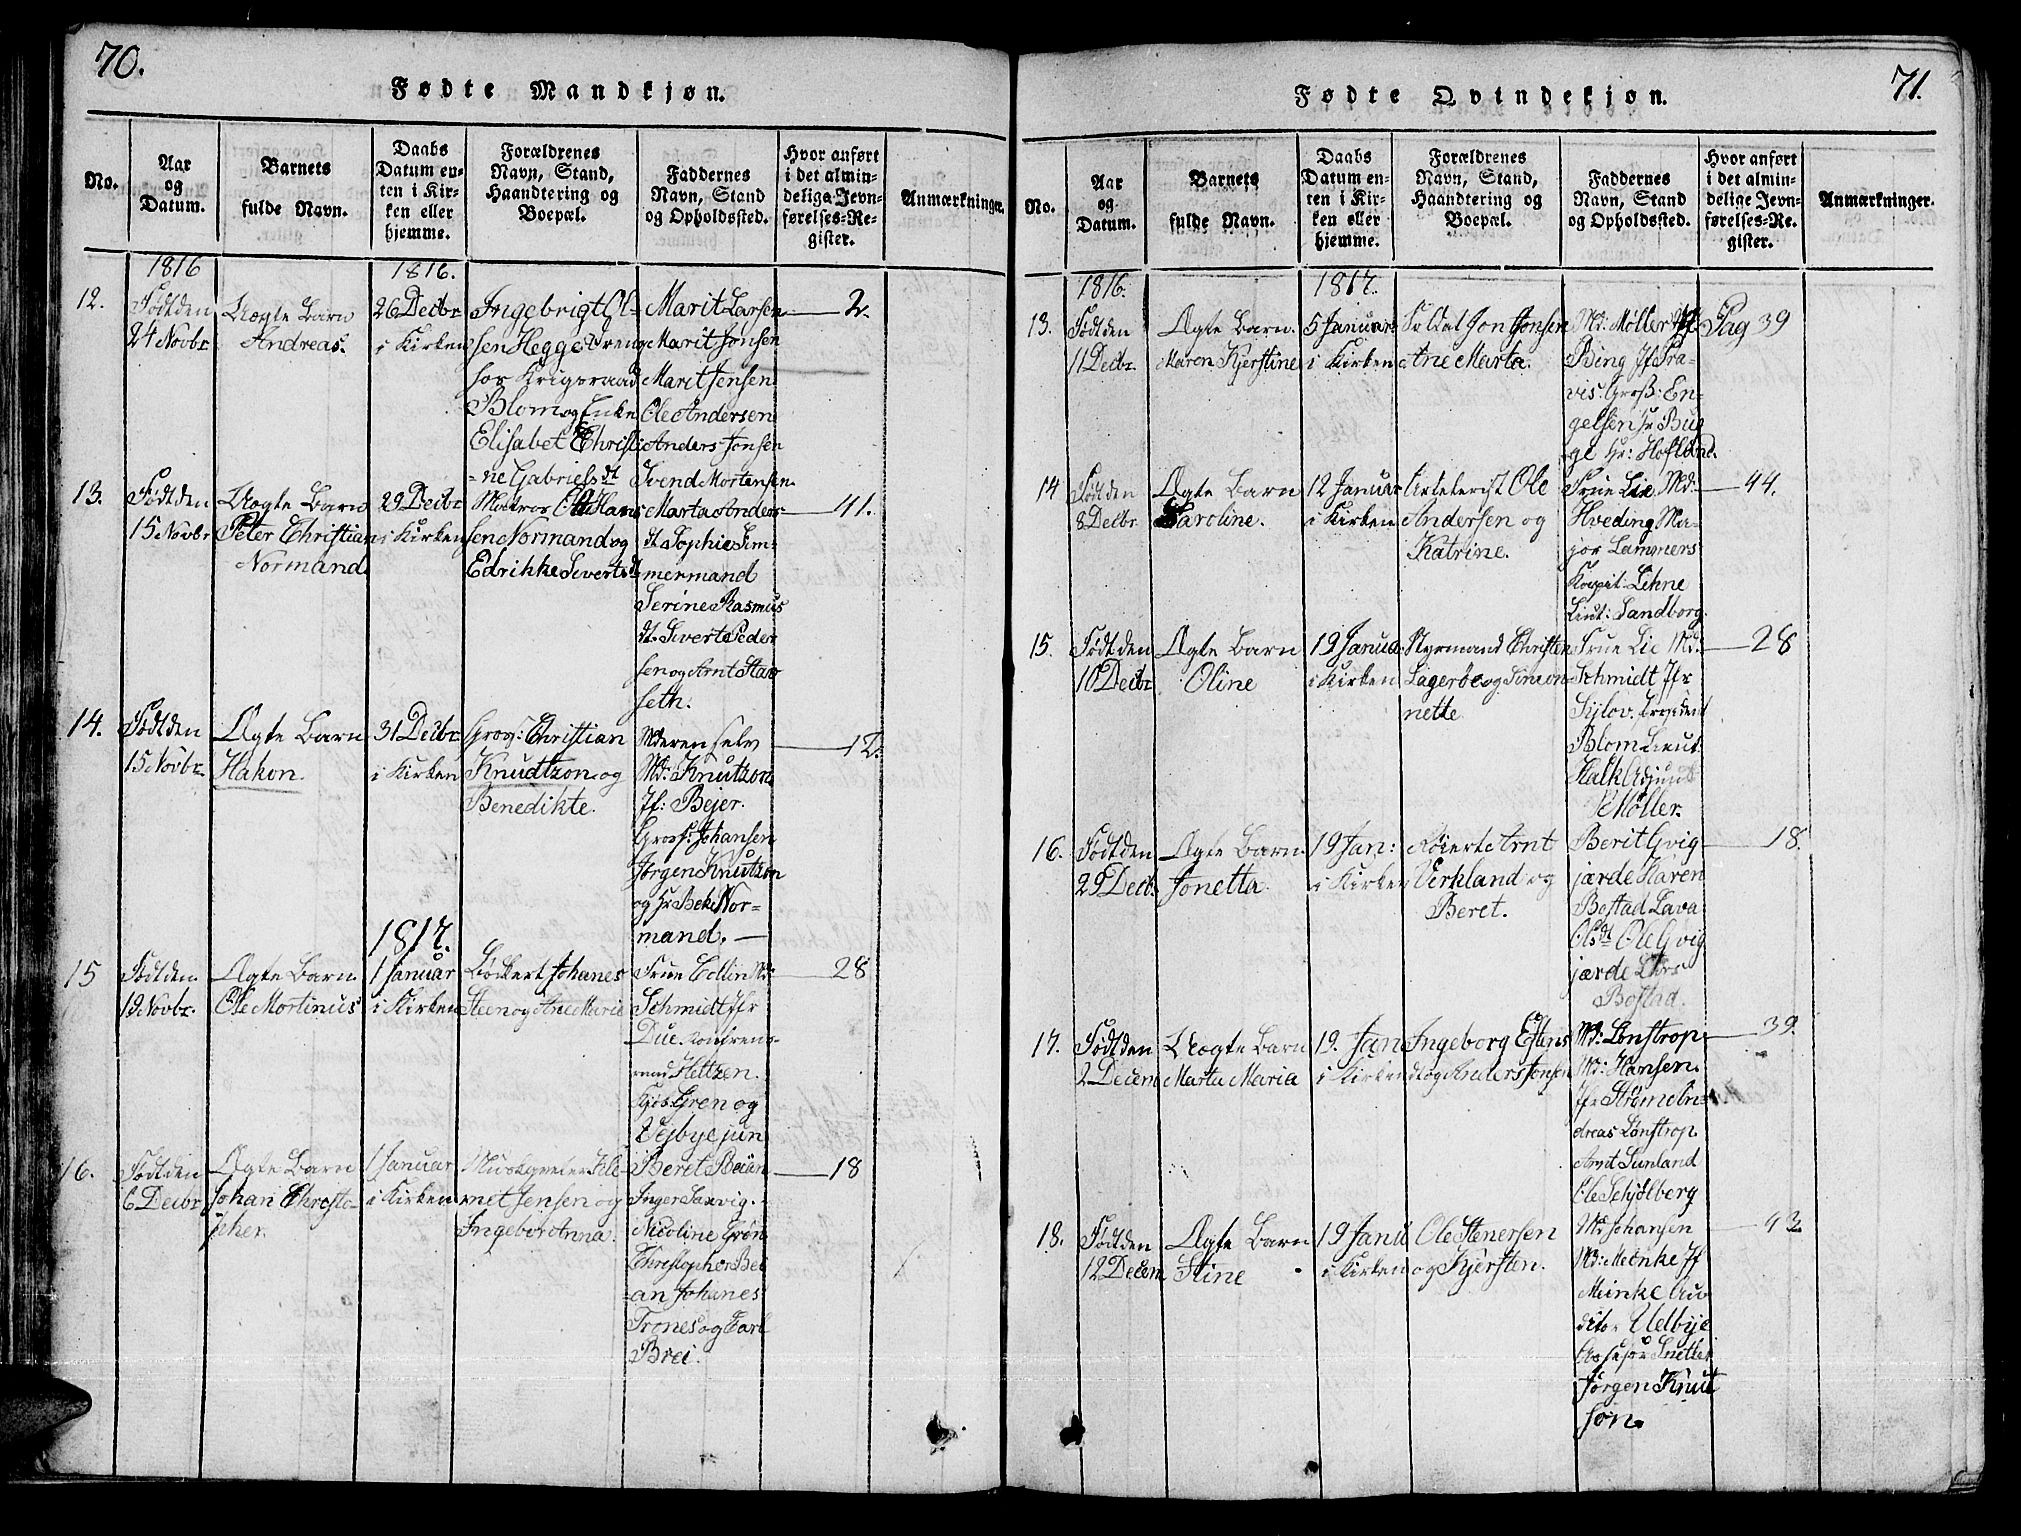 70.
Fødte Mandkjøn.
No.
Aar
og
Datum.
Barnets
fulde Navn.
Daabs
Datum en-
ten i Kir-
ken eller
hjemme.
Forældrenes
Navn, Stand,
Haandtering og
Boepæl.
Faddernes
Navn, Stand
og Opholdssted.
Hvor anført
i det almin-
delige Jevn-
førelses-Re-
gister.
Anmærkninger.
12.
1816
Født den
24 Novbr
Uægte Barn
Andreas.
1816.
26 Decbr
i Kirken
Ingebrigt Ol-
sen Hegge Dreng
hos Krigsraad
Blom og Enke
Elisabet Christi
=ne Gabrielsdt
Marit Larsen
Marit Jonsen
Marit Jensen
Ole Andersen
Anders Jonsen
Svend Mortensen
2.
13.
Født den
15 Novbr
Uægte Barn
Peter Christian
Normand.
29 Decbr
i Kirken
Matros Ole Hans
sen Normand og
Edrikke Sivertsdt
Marta Anders-
dt Sophie Tim-
mermand
Serine Rasmus
dt. Sivert Peder
sen og Arnt Stav
seth.
41.
14.
Født den
15 Novbr.
Ægte Barn
Hakon.
31 Decbr.
i Kirken
Gros: Christian
Knudtzon og
Benedikte.
Moderen selv
Md: Knutzon
Jf: Bejer.
Gross: Johansen
Jørgen Knutzon
og Hr Beke Nor-
mand.
12.
15
Født den
19 Novbr.
Ægte Barn
Ole Mortinus
1817.
1 Januar
i Kirken
Bøckert Johanes
Steen og Ane Marie
Frue Collin Md:
Schmidt Jfr
Due. Konfrens-
raad Heltzen.
Kjøb: Gren og
Vejbye jun
28
16.
Født den
6 Decbr
Ægte Barn
Johan Christo-
pher.
1 Januar
i Kirken
Muskyeteer Kle-
met Jensen og
Ingebor Anna.
Beret Beian
Inger Saxvig.
Nicoline Grøn
Christopher Bei
=an Johanes
Trones og Carl
Brei.
18
71.
Fødte Qvindekjøn.
No.
Aar
og
Datum.
Barnets
fulde Navn.
Daabs
Datum en-
ten i Kir-
ken eller
hjemme.
Forældrenes
Navn, Stand,
Haandtering og
Boepæl.
Faddernes
Navn, Stand
og Opholdssted.
Hvor anført
i det almin-
delige Jevn-
førelses-Re-
gister.
Anmærkninger.
13.
1816.
Født den
11 Decbr.
Ægte Barn.
Maren Kjerstine
1817.
5 Januar
i Kirken
Soldat Jon Jonsen
Ane Marta.
Md: Møller Jf
Bing Jf Pra-
vis. Groß: En-
gelsen Hr Bug
ge Hr: Hoflund.
Pag 39
14
Født den
8 Decbr
Ægte Barn
Karoline.
12 Januar
i Kirken
Artelerist Ole
Andersen og
Katrine.
Frue Lie Md:
Hveding Ma-
jor Lammers
Kapit: Lehne
Lieut: Sandborg.
44.
15.
Født den
10 Decbr
Ægte Barn
Oline
19 Janua
i Kirken
Styrmand Christen
Lagerbe og Simon-
nette
Frue Lie Md:
Schmidt Jfr
Sylov. Lieut:
Blom Lieut:
Halk Adjunt
Møller.
28
16.
Født den
29 Decb.
Ægte Barn.
Jonetta.
19 Jan:
i Kirken
Røiert Arnt
Verkland og
Beret.
Berit Gvig
jærde Karen
Bostad Lava
Olsdt Ole Gvig
jærde Lars
Bostad.
18.
17.
Født den
2 Decem
Uægte Barn
Marta Maria
19. Jan
i Kirken
Ingeborg Estens
dt og Anders Jonsen
Md: Lønstrop
Md: Hansen.
Jfr Strøm
dreas Lønstrop.
Arnt Sunland
Ole Schjølberg
39.
18.
Født den
12 Decem
Ægte Barn
Stine
19 Janu
i Kirken
Ole Stenersen
og Kjersten.
Md Johansen
Md: Meinke Jf
Meinke Au
ditor Uelbye
Assesor Snetler
Jørgen Knut
søn.
43